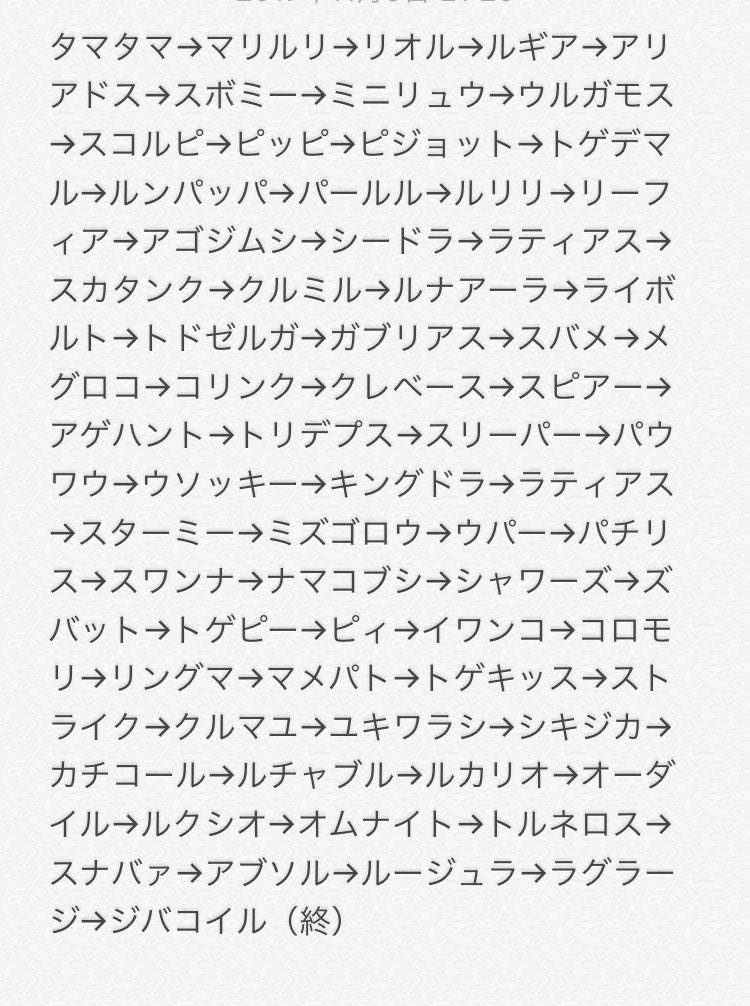 タマタマ→マリルリ→リオル→ルギア→アリ
アドス→スボミー→ミニリュウ→ウルガモス
→スコルピ→ピッピ→ピジョット→トゲデマ
ル→ルンパッパ→パールル→ルリリ→リーフ
ィア→アゴジムシ→シードラ→ラティアス→
スカタンク→クルミル→ルナアーラ→ライボ
ルト→トドゼルガ→ガブリアス→スバメ→メ
グロコ→コリンク→クレベース→スピアー→
アゲハント→トリデプス→スリーパー→パウ
ワウ→ウソッキー→キングドラ→ラティアス
→スターミー→ミズゴロウ→ウパー→パチリ
ス→スワンナ→ナマコブシ→シャワーズ→ズ
バット→トゲピー→ピィ→イワンコ→コロモ
リ→リングマ→マメパト→トゲキッス→スト
ライク→クルマユ→ユキワラシ→シキジカ→
カチコール→ルチャブル→ルカリオ→オーダ
イル→ルクシオ→オムナイト→トルネロス→
スナバァ→アブソル→ルージュラ→ラグラー
ジ→ジバコイル（終）